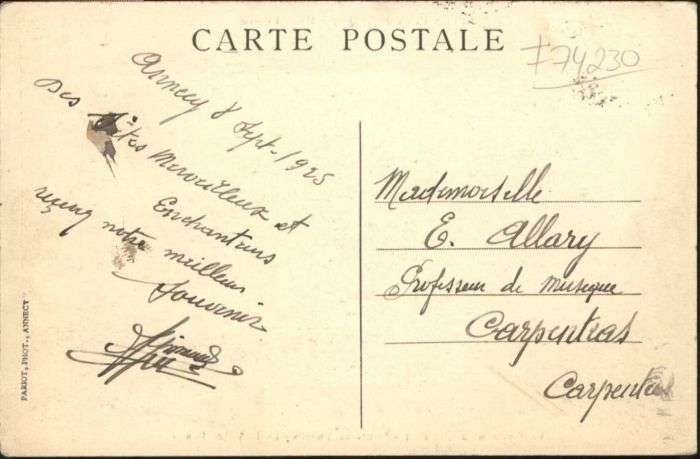 CARTE POSTALE
Annecy 8 Sept. 1925
Des Sites Merveilleux et
Enchanteurs
reçevez notre meilleur
Souvenir
Mademoiselle
E. Allary
Professeur de musique
Carpentras
Carpentras
774230
PARIOT, PHOT., ANNECY